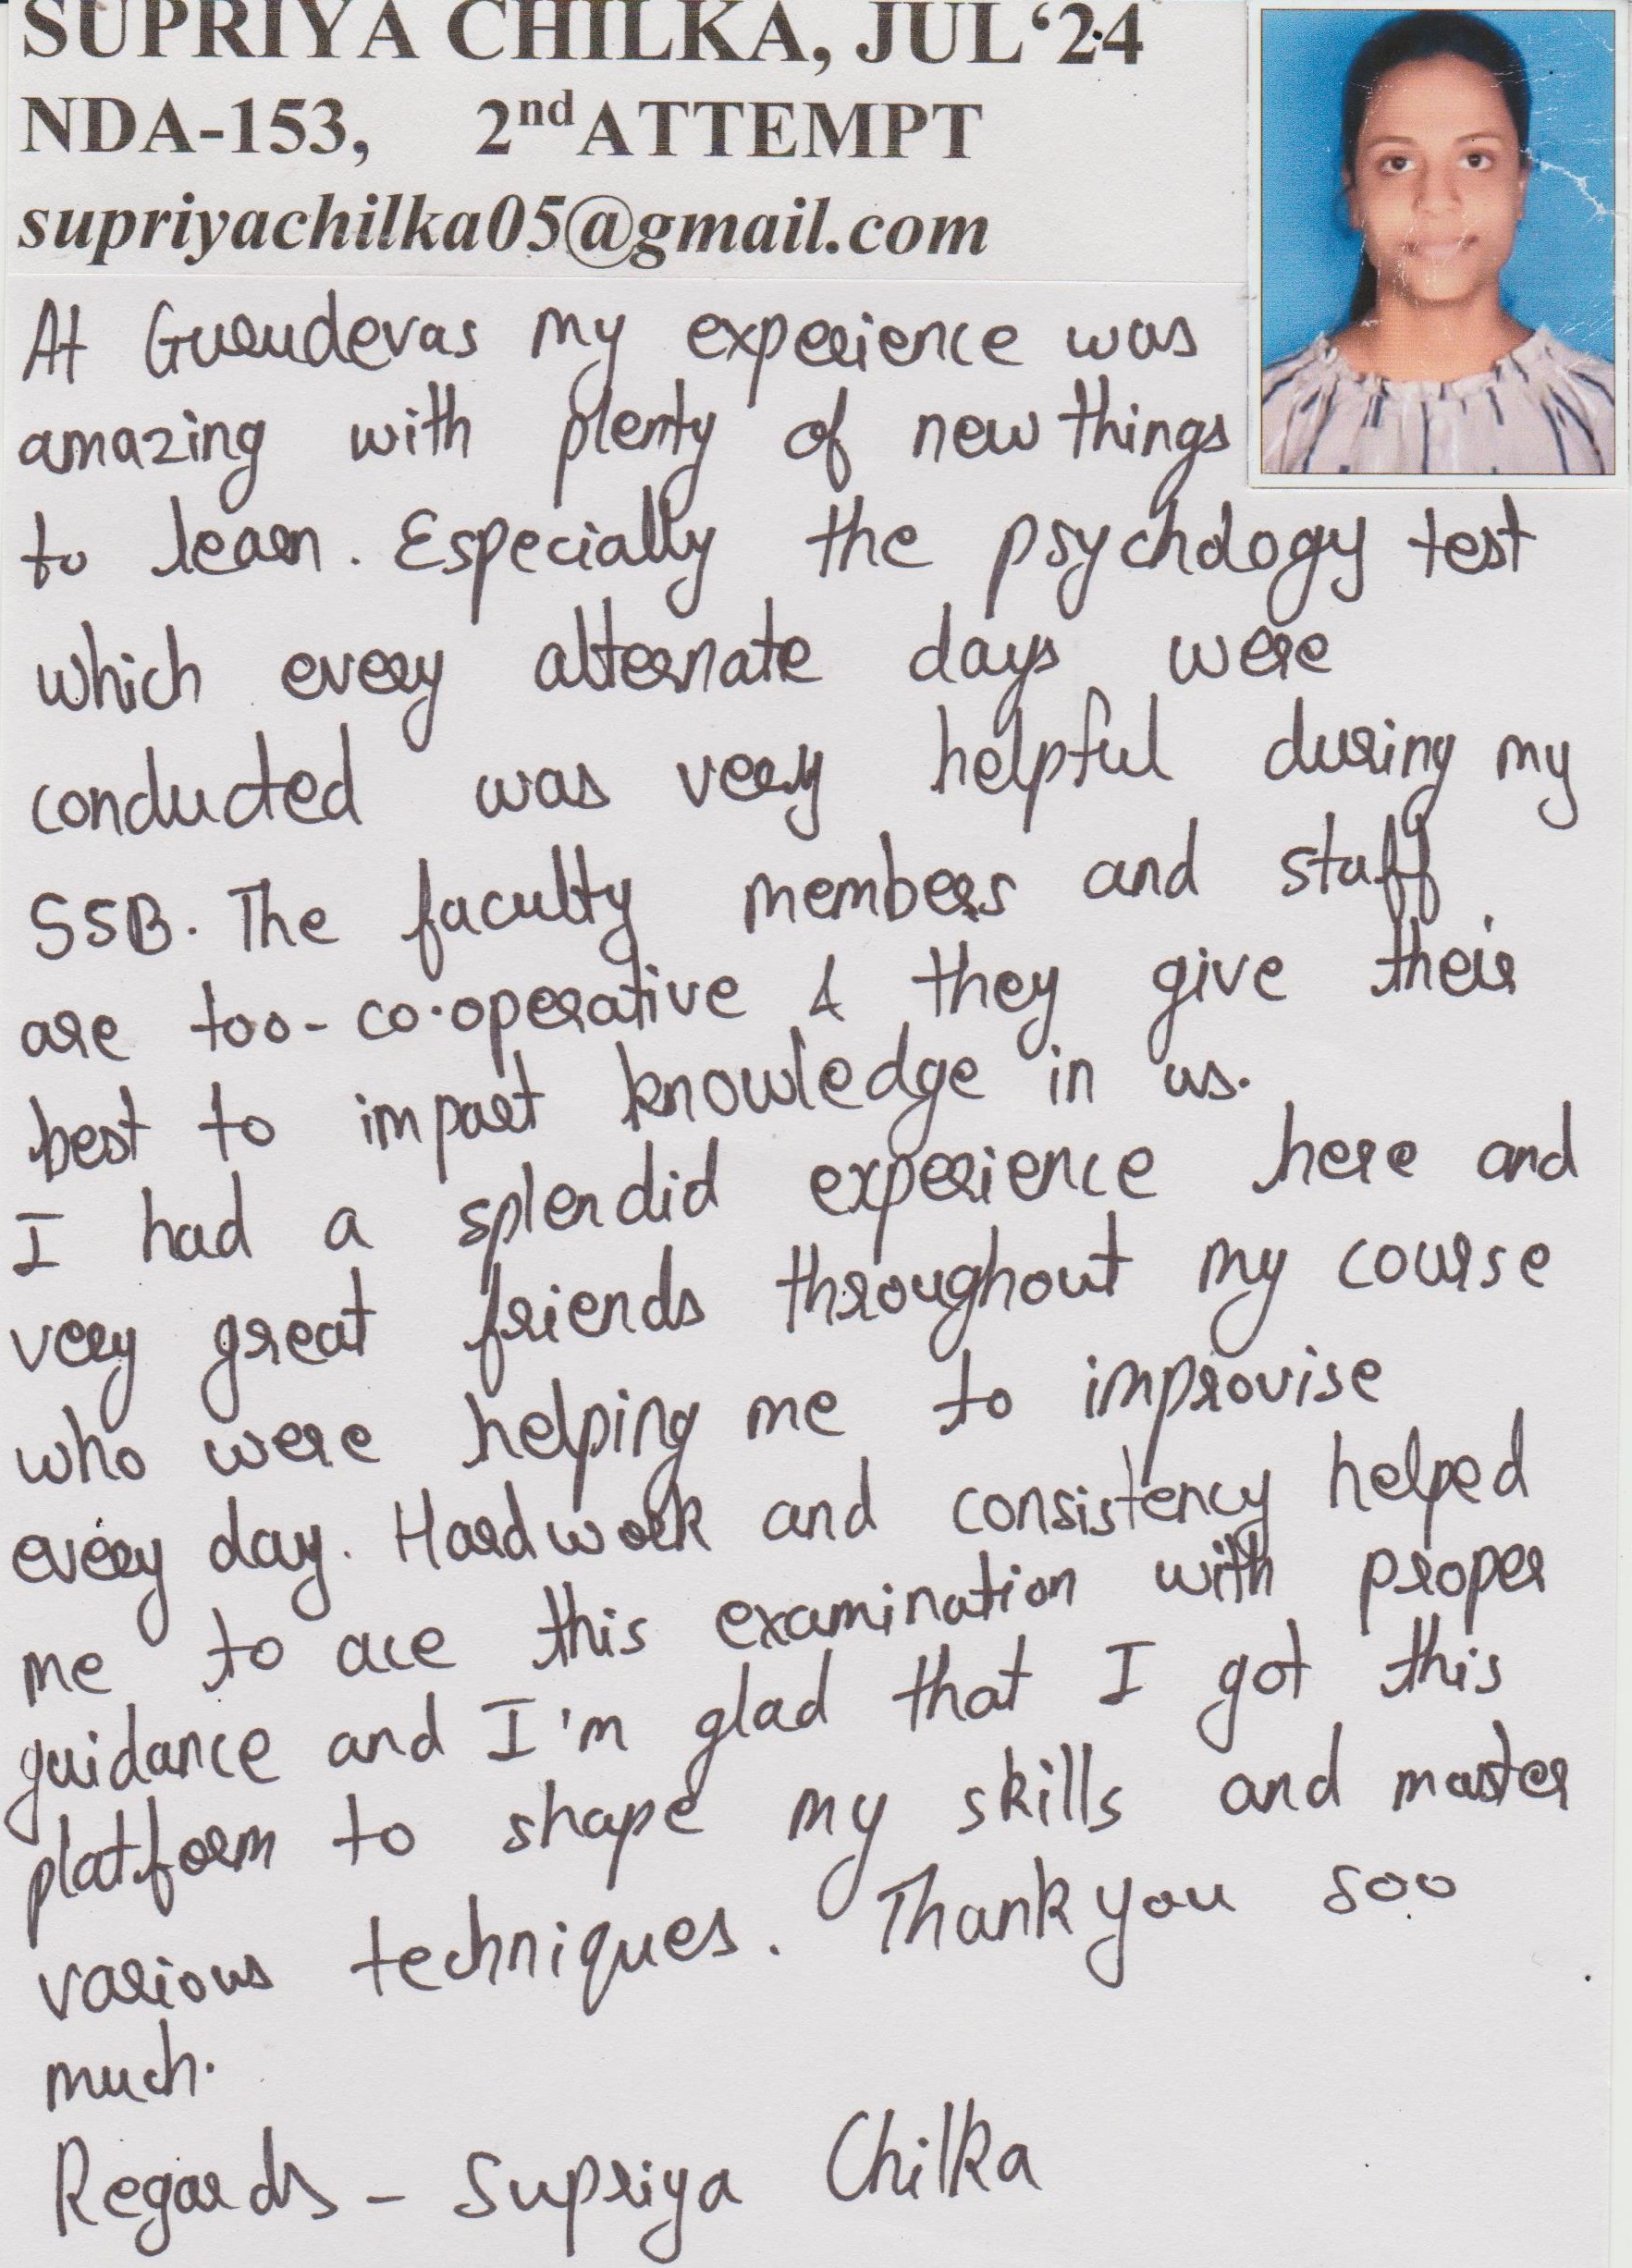 SUPRIYA CHILKA, JUL‘24
NDA-153, 2nd ATTEMPT
supriyachilka05@gmail.com
At Gurudevas my experience was
amazing with plenty of new things
to learn. Especially the psychology test
which every alternate days were
conducted was very helpful during my
SSB. The faculty members and staff
are too-co-operative & they give their
best to impart knowledge in us.
I had a splendid experience here and
very great friends throughout my course
who were helping me to improvise
every day. Hardwork and consistency helped
me to ace this examination with proper
guidance and I'm glad that I got this
platform to shape my skills and master
various techniques. Thank you soo
much.
Regards - Supriya Chilka